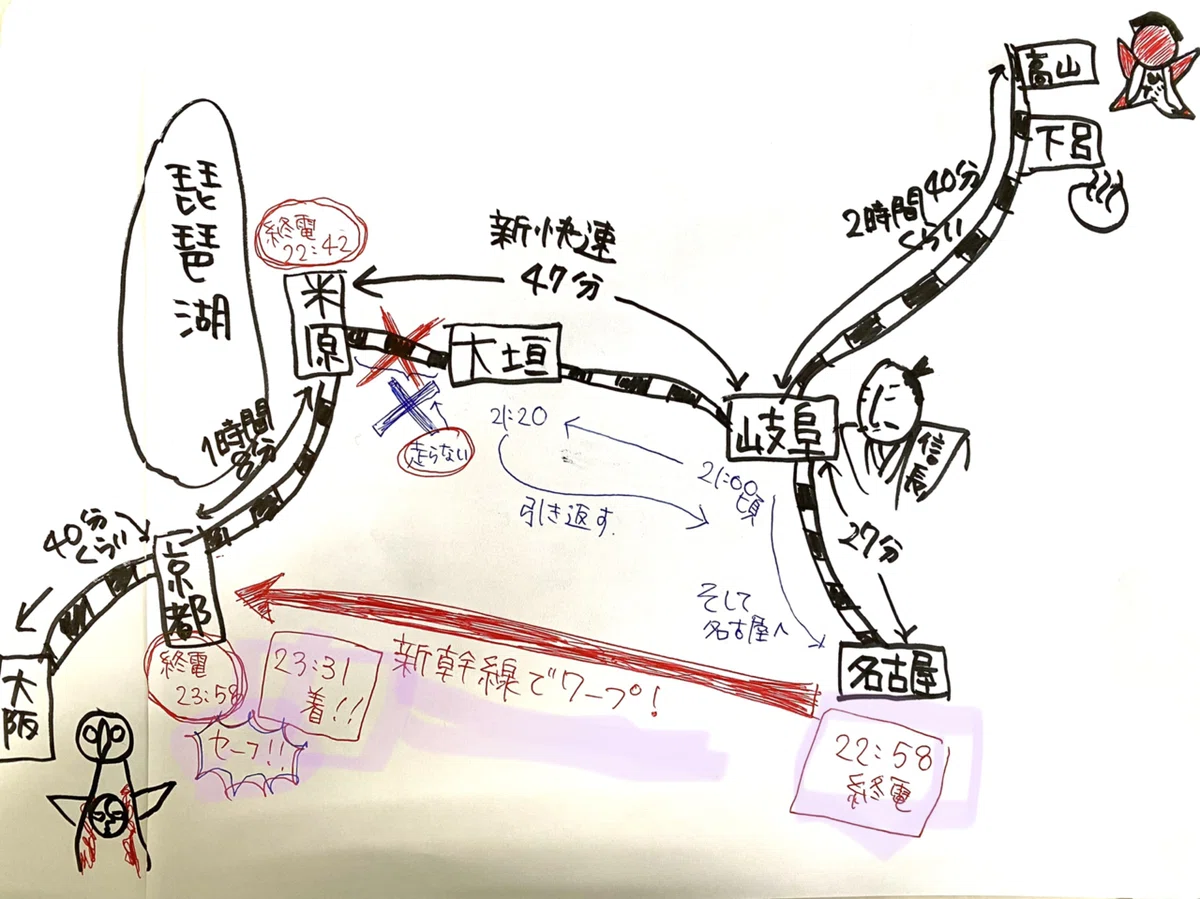 高山
下呂
2時間40分
くらい
琵琶湖
終電
22:42
新快速
47分
米原
大垣
岐阜
信長
走らない
21:20
21:00
頃
引き返す
27分
1時間
8分
40分
くらい
京都
終電
23:58
23:31
着!!
セーフ!!
新幹線でワープ!
そして
名古屋へ
名古屋
22:58
終電
大阪